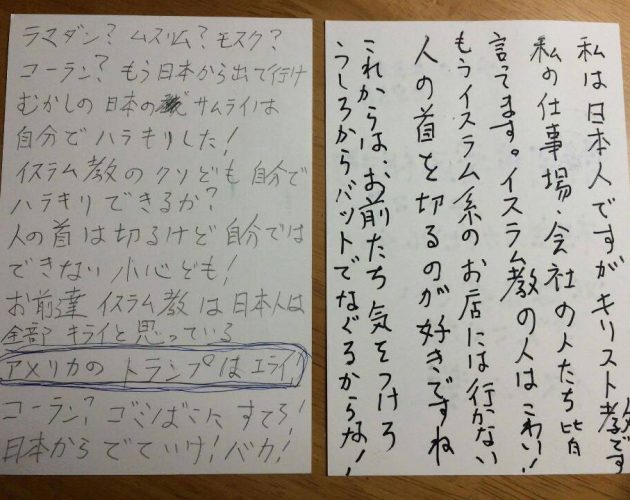 ラマダン? ムスリム? モスク?
コーラン? もう日本から出て行け
むかしの 日本の サムライは
自分で ハラキリした!
イスラム教のクソども 自分で
ハラキリ できるか?
人の首は切るけど 自分では
できない 小心ども!
お前達 イスラム教は日本人は
全部 キライと思っている
アメリカの トランプは エライ!
コーラン? ゴミばこに すてろ!
日本から でていけ! バカ!
私は日本人ですがキリスト教です
私の仕事場・会社の人たち皆
言ってます。イスラム教の人はこわい!
もうイスラム系のお店には行かない
人の首を切るのが好きですね
これからは、お前たち気をつけろ
うしろからバットでなぐるからな!